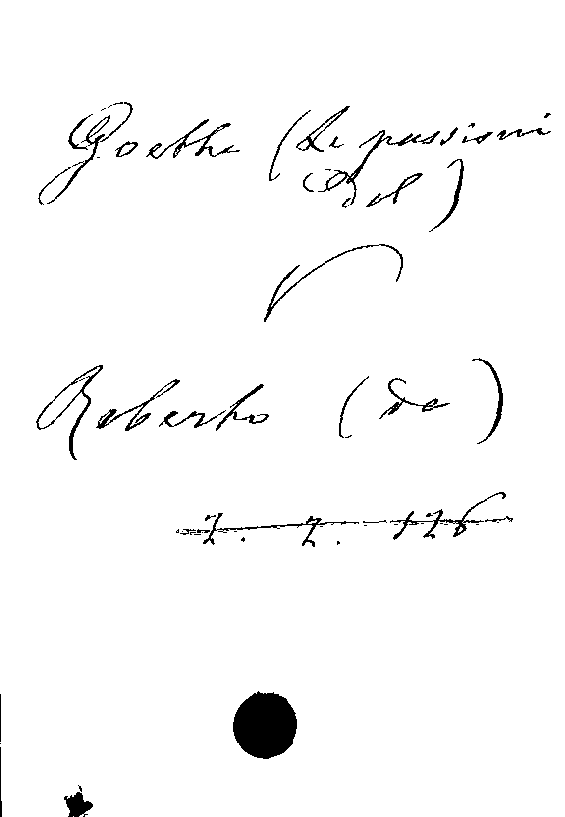 Goethe (Le passioni
del)
V
Roberto (de)
Z. Z. 126